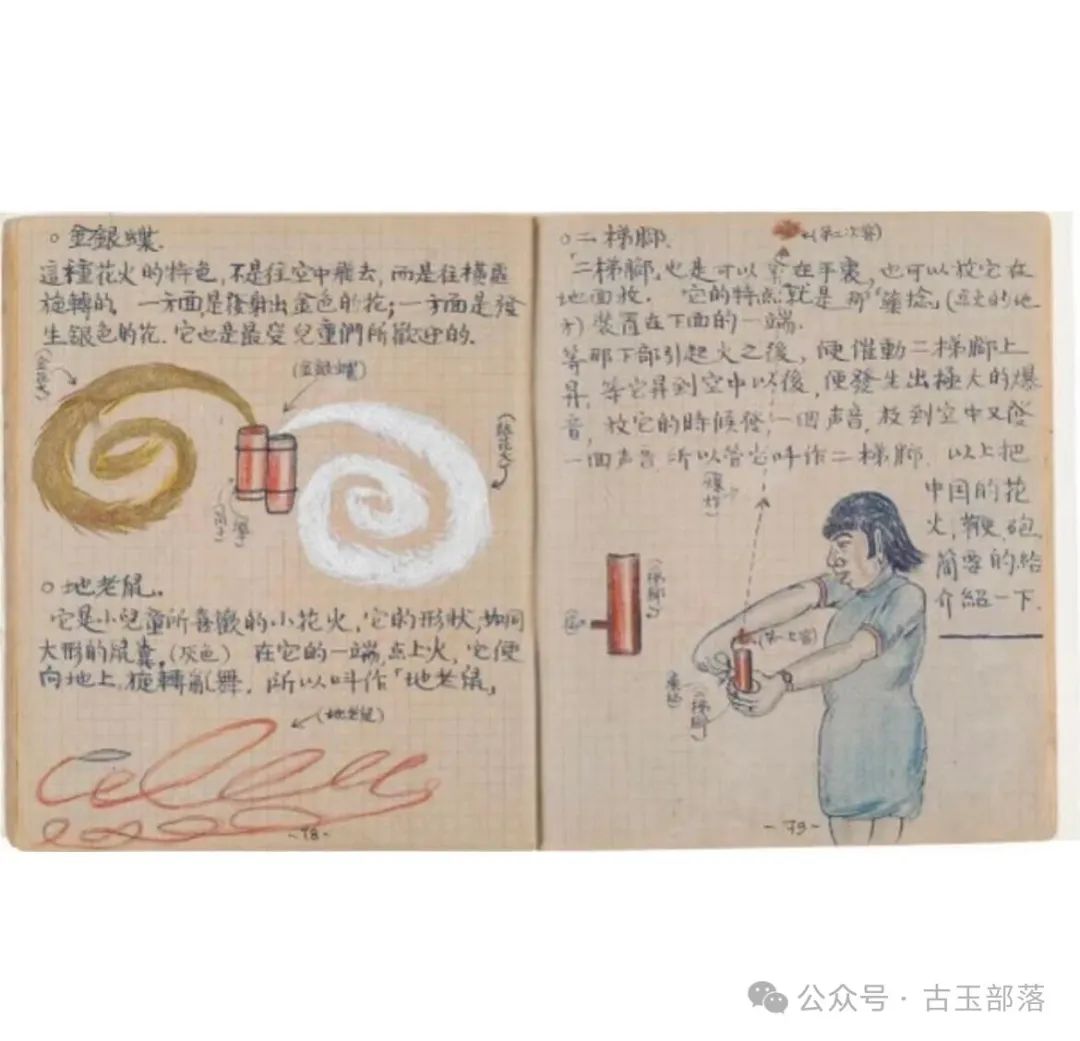 ○金銀蝶.
這種花火的特色,不是往空中飛去,而是往橫處
旋轉的. 一方面是發射出金色的花;一方面是發
生銀色的花.它也是最受兒童們所歡迎的.
(金花火)
(金銀蝶)
(銀花火)
(筒子)
○地老鼠.
它是小兒童所喜歡的小花火,它的形狀,如同
大形的鼠糞.(灰色) 在它的一端,点上火,它便
向地上旋轉亂舞. 所以叫作「地老鼠」
(地老鼠)
-78-
○二梯腳.
(第二次響)
「二梯腳」也是可以拿在手裏,也可以放它在
地面放. 它的特点就是那「藥捻」(点火的地
方)裝置在下面的一端.
等那下部引起火之後,便催動二梯腳上
昇,等它昇到空中以後,便發生出極大的爆
音,放它的時候發一個声音,放到空中又發
一個声音所以管它叫作二梯腳. 以上把
中国的花
火,鞭,砲,
簡要的給
介紹一下.
(爆炸)
(二梯腳)
(第一次響)
(二梯腳)
-79-
公众号·古玉部落